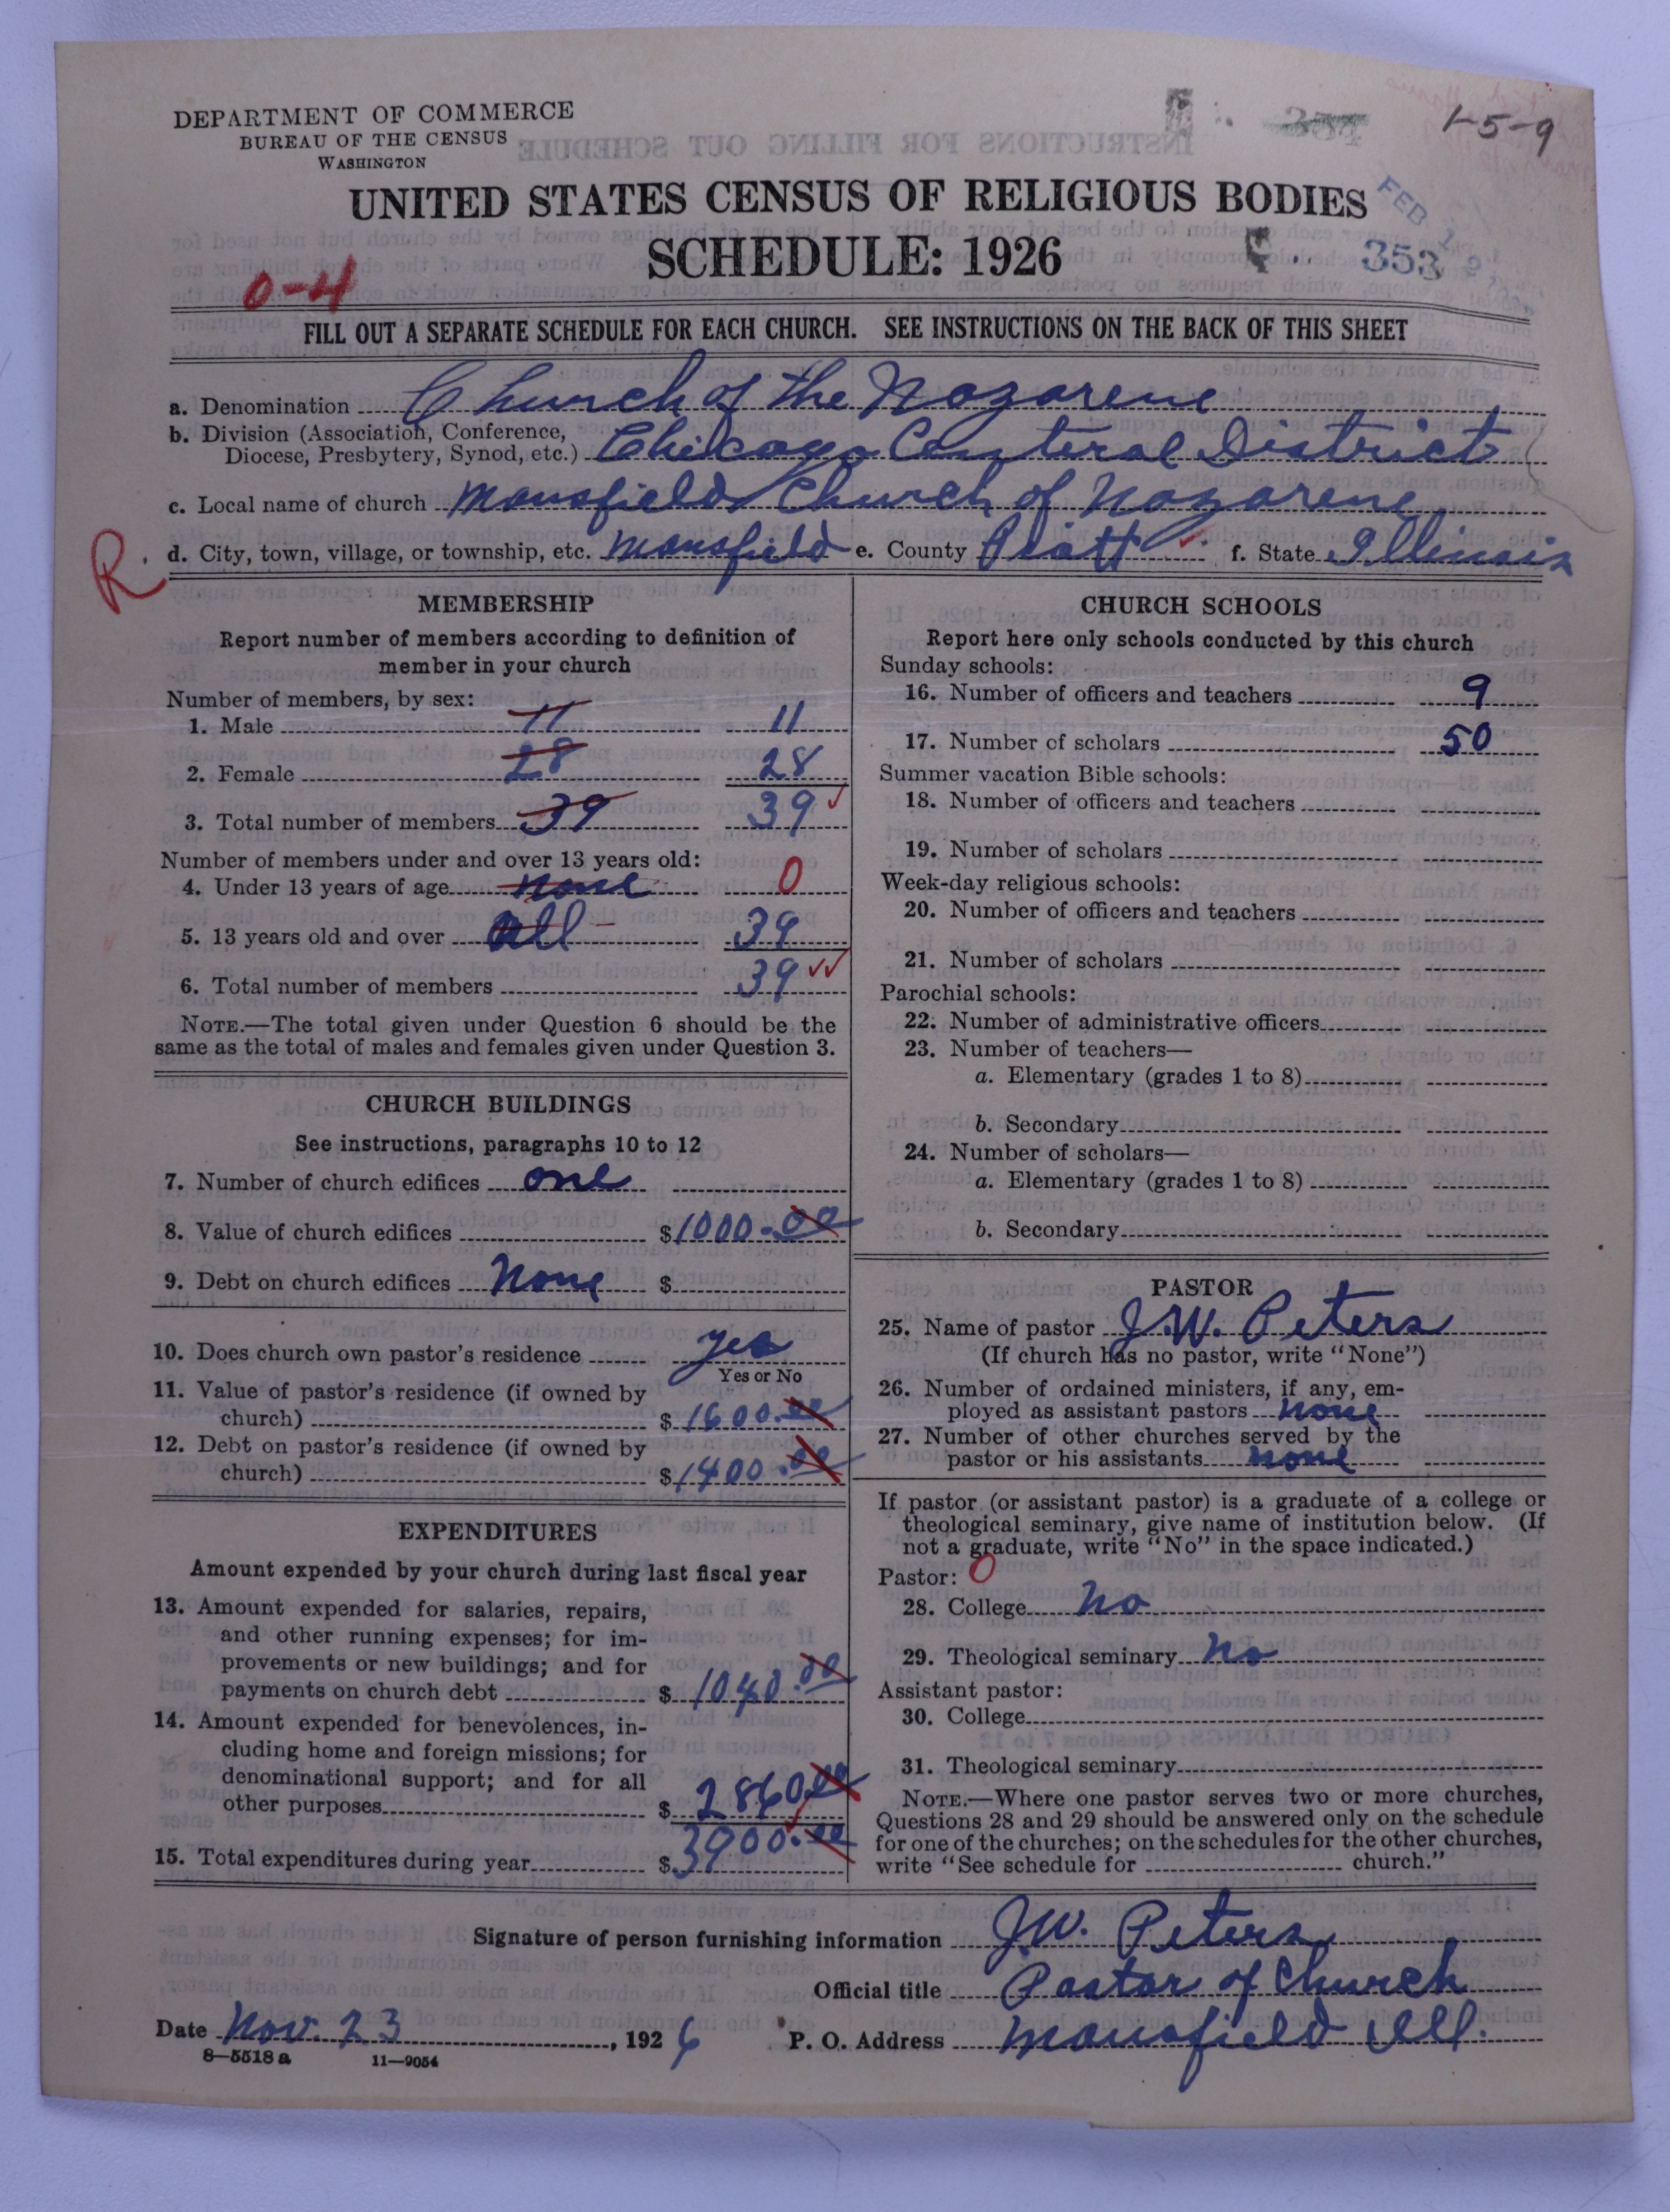 DEPARTMENT OF COMMERCE
BUREAU OF THE CENSUS
WASHINGTON
354
1-5-9
UNITED STATES CENSUS OF RELIGIOUS BODIES
SCHEDULE: 1926
FEB 1
353
0-4
FILL OUT A SEPARATE SCHEDULE FOR EACH CHURCH. SEE INSTRUCTIONS ON THE BACK OF THIS SHEET
a. Denomination Church of the Nazarene
b. Division (Association, Conference,
Diocese, Presbytery, Synod, etc.) Chicago Centeral District
c. Local name of church Mansfield Church of Nazarene
R. d. City, town, village, or township, etc. Mansfield e. County Piatt f. State Illinois
MEMBERSHIP
Report number of members according to definition of
member in your church
Number of members, by sex:
1. Male 11 11
2. Female 28 28
3. Total number of members 39 39
Number of members under and over 13 years old:
4. Under 13 years of age none 0
5. 13 years old and over all 39
6. Total number of members 39
NOTE.—The total given under Question 6 should be the
same as the total of males and females given under Question 3.
CHURCH BUILDINGS
See instructions, paragraphs 10 to 12
7. Number of church edifices one
8. Value of church edifices $1000.00
9. Debt on church edifices None $
10. Does church own pastor's residence yes
Yes or No
11. Value of pastor's residence (if owned by
church) $ 1600.00
12. Debt on pastor's residence (if owned by
church) $1400.00
EXPENDITURES
Amount expended by your church during last fiscal year
13. Amount expended for salaries, repairs,
and other running expenses; for im-
provements or new buildings; and for
payments on church debt $ 1040.00
14. Amount expended for benevolences, in-
cluding home and foreign missions; for
denominational support; and for all
other purposes $ 2860.00
15. Total expenditures during year $ 3900.00
CHURCH SCHOOLS
Report here only schools conducted by this church
Sunday schools:
16. Number of officers and teachers 9
17. Number of scholars 50
Summer vacation Bible schools:
18. Number of officers and teachers
19. Number of scholars
Week-day religious schools:
20. Number of officers and teachers
21. Number of scholars
Parochial schools:
22. Number of administrative officers
23. Number of teachers—
a. Elementary (grades 1 to 8)
b. Secondary
24. Number of scholars—
a. Elementary (grades 1 to 8)
b. Secondary
PASTOR
25. Name of pastor J.W. Peters
(If church has no pastor, write "None")
26. Number of ordained ministers, if any, em-
ployed as assistant pastors none
27. Number of other churches served by the
pastor or his assistants none
If pastor (or assistant pastor) is a graduate of a college or
theological seminary, give name of institution below. (If
not a graduate, write "No" in the space indicated.)
Pastor: 0
28. College No
29. Theological seminary No
Assistant pastor:
30. College
31. Theological seminary
NOTE.—Where one pastor serves two or more churches,
Questions 28 and 29 should be answered only on the schedule
for one of the churches; on the schedules for the other churches,
write "See schedule for church."
Signature of person furnishing information J.W. Peters
Official title Pastor of Church
Date Nov. 23, 1926 P. O. Address Mansfield Ill.
8—5518 a 11—9054